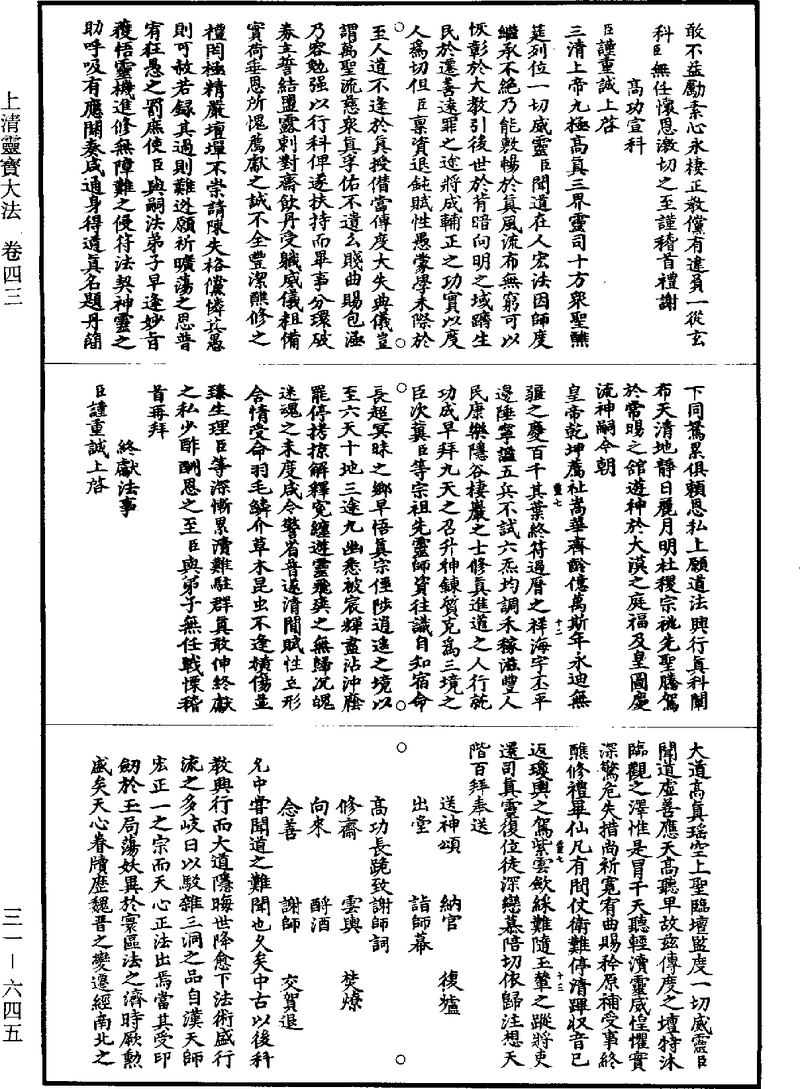 敢不益勵素心永棲正敎儻有違負一從玄
科臣無任懷恩激切之至謹稽首禮謝
高功宣科
臣謹重誠上啓
三清上帝九極高真三界靈司十方眾聖醮
筵列位一切威靈臣聞道在人宏法因師度
繼承不絕乃能敷暢於真風流布無窮可以
恢彰於大教引後世於背暗向明之域躋生
民於還善遠罪之途將成輔正之功實以度
人為切但臣稟資退鈍賦性愚蒙學未際於
至人道不逢於真授僭當傳度大失典儀豈
謂萬聖流慈眾真孚佑不遺么賤曲賜包涵
乃容勉强以行科俾遂扶持而畢事分環破
券立誓結盟露刺對齋飲丹受職威儀粗備
實荷垂恩所愧薦獻之誠不全豐潔醮修之
禮罔極精嚴壇墠不崇請陳失格儻憐其愚
則可赦若録其過則難逃願祈曠蕩之恩普
宥狂愚之罰庶使臣與嗣法弟子早逢妙旨
獲悟靈機進修無障難之侵符法契神靈之
助呼吸有應關奏咸通身得道真名題丹簡
下同鴛累俱賴恩私上願道法興行真科闡
布天清地靜日麗月明社稷宗祧先聖騰駕
於常暘之館遊神於大漠之庭福及皇圖慶
流神嗣今朝
皇帝乾坤薦祉嵩華齊齡億萬斯年永迪無
疆之慶百千其葉終符過曆之祥海宇丕平
邊陲寧謐五兵不試六炁均調禾稼滋豐人
民康樂隱谷棲巖之士修真進道之人行就
功成早拜九天之召升神鍊質克為三境之
臣次冀臣等宗祖先靈師資往識自知宿命
長超冥昧之鄉早悟真宗徑陟逍遥之境以
至六天十地三途九幽悉被宸輝盡沾沖廕
罷停拷掠解釋寃纏遊靈飛爽之無歸沉魄
迷魂之未度咸令警省普遂清閒賦性立形
含情受命羽毛鱗介草木昆虫不逢橫傷並
臻生理臣等深慚累瀆難駐群真敢伸終獻
之私少酢酬恩之至臣與弟子無任戰慄稽
首再拜
終獻法事
臣謹重誠上啓
大道高真瑶空上聖臨壇監度一切威靈臣
聞道虛善應天高聽早故兹傳度之壇特沐
臨觀之澤惟是冒千天聽輕瀆靈威惶懼實
深驚危失措尚祈寬宥曲賜矜原補受事終
醮修禮畢仙凡有間仗衛難停清蹕収音已
返瓊輿之駕紫雲斂綵難隨玉輦之蹤將吏
還司真靈復位徒深戀慕陪切依歸注想天
階百拜奉送
送神頌　納官　復爐
出堂　詣師幕
高功長跪致謝師詞
修齋　雲輿　焚燎
向來　酹酒
念善　謝師　交賀退
凡中當聞道之難聞也久矣中古以後科
教興行而大道隱晦世降愈下法術盛行
流之多岐日以駮雜三洞之品自漢天師
宏正一之宗而天心正法出焉當其受印
劒於玉局蕩妖異於寰區法之濟時厥勲
盛矣天心眷牘歷魏晋之變遷經南北之
上清靈寶大法　卷四三
三一—六四五